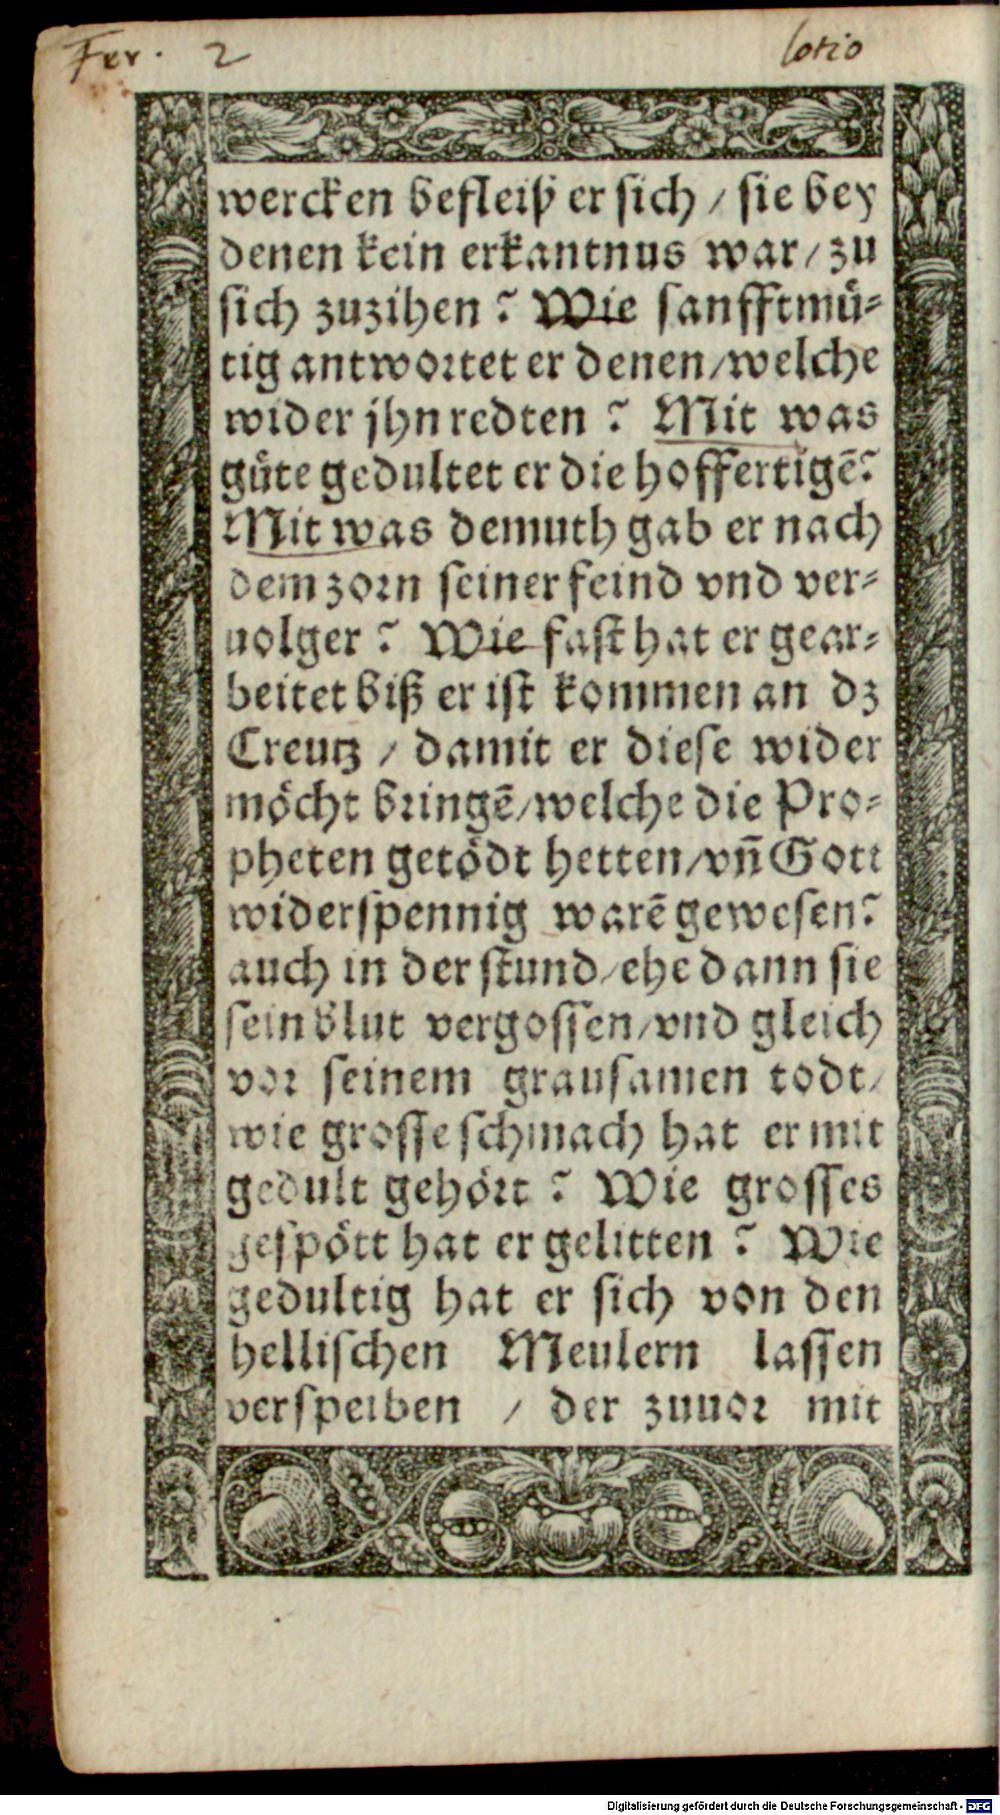 Fer. 2 lotio
wercken befleiß er sich / sie bey
denen kein erkantnus war / zu
sich zuzihen? Wie sanfftmuͤ-
tig antwortet er denen / welche
wider jhn redten? Mit was
guͤte gedultet er die hoffertigē?
Mit was demuth gab er nach
dem zorn seiner feind vnd ver-
uolger? Wie fast hat er gear-
beitet biß er ist kommen an dz
Creutz / damit er diese wider
moͤcht bringē / welche die Pro-
pheten getoͤdt hetten / vn̄ Gott
widerspennig warē gewesen?
auch in der stund / ehe dann sie
sein blut vergossen / vnd gleich
vor seinem grausamen todt /
wie grosse schmach hat er mit
gedult gehoͤrt? Wie grosses
gespoͤtt hat er gelitten? Wie
gedultig hat er sich von den
hellischen Meulern lassen
verspeiben / der zuuor mit
Digitalisierung gefördert durch die Deutsche Forschungsgemeinschaft - DFG